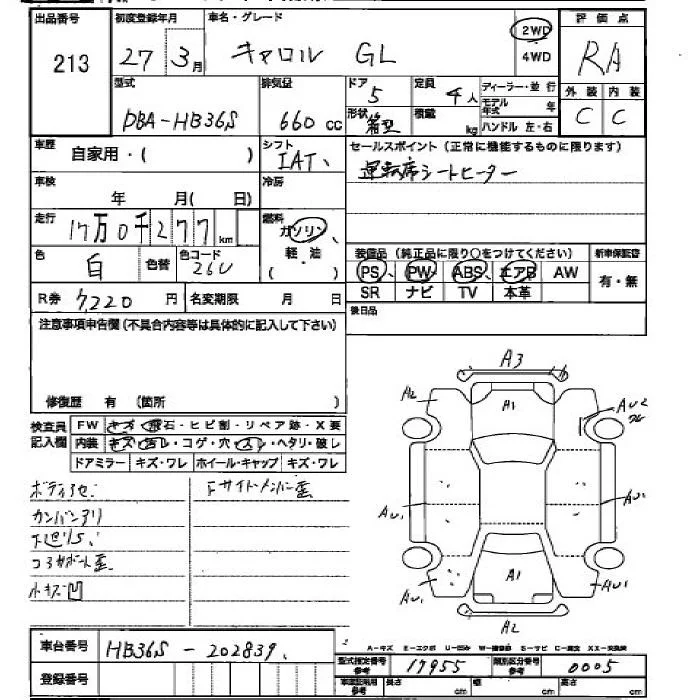 出品番号 213
初度登録年月 27 3月
車名・グレード キャロル GL
2WD
4WD
評価点 RA
型式 DBA-HB36S
排気量 660 cc
ドア 5
形状 箱型
定員 4人
積載 kg
ディーラー・並行
モデル年式 年
ハンドル 左・右
外装 C
内装 C
車歴 自家用・( )
シフト IAT
セールスポイント(正常に機能するものに限ります)
運転席シートヒーター
車検 年 月(日)
冷房
走行 17万0千277 km
燃料 ガソリン、
軽・油
( )
色 白 色替
色コード 26U
装備品(純正品に限り○をつけてください)
新車保証書
PS、 PW ABS エアB AW
有・無
SR ナビ TV 本革
R券 7,220 円
名変期限 月 日
後日品
注意事項申告欄(不具合内容等は具体的に記入して下さい)
修復歴 有 (箇所
検査員記入欄
FW キズ・飛石・ヒビ割・リペア跡・X要
内装 キズ・汚レ・コゲ・穴・スレ・ヘタリ・破レ
ドアミラー キズ・ワレ ホイール・キャップ キズ・ワレ
ボディアセ
カンバンアリ
下廻りS、
コアサポート歪
小キズ凹
Fサイドメンバー歪
A3
A2 A1 AU2
AU1 AU1
AU1 A1 AU1
A2
A-キズ E-エクボ U-凹み W-補修跡 S-サビ C-腐食 XX-交換済
車台番号 HB36S - 202839
登録番号
型式指定番号 参考 17955
類別区分番号 参考 0005
車庫証明用 参考 長さ cm 幅 cm 高さ cm